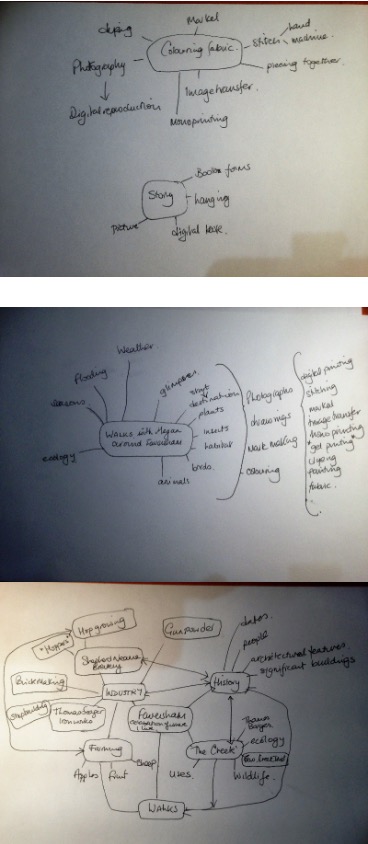 Markal
dyeing
hand
Colouring fabric.
Stitch
machine.
Photography
piecing together.
Image transfer.
Digital reproduction
Monoprinting
Book forms
Story
hanging
picture
digital book.
Weather
flooding
glimpses
seasons
start
destination
Walks with Megan
around Faversham
plants
insects
habitat
ecology
birds
animals
Photographs
drawings
Mark making
colouring
digital printing
stitching
markal
Image transfer
Mono printing
"gel printing"
dyeing
painting
fabric
"Hoppers"
Hop growing
Gunpowder
dates
people
Shepherd Neame
Brewery
architectural features
significant buildings
Brickmaking
INDUSTRY
History
Shipbuilding
Thomas
Ironworks
Faversham
Thames
Barges
'The Creek'
ecology
Farming
Sheep
Apples
fruit
uses
Wildlife
WALKS